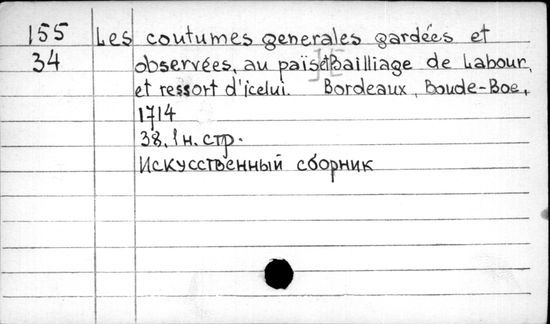 155 Les coutumes generales gardées et
34 observées, au païs et Bailliage de Labour,
et ressort d'icelui. Bordeaux, Boude-Boe,
1714
38, 1 н. стр.
Искусственный сборник